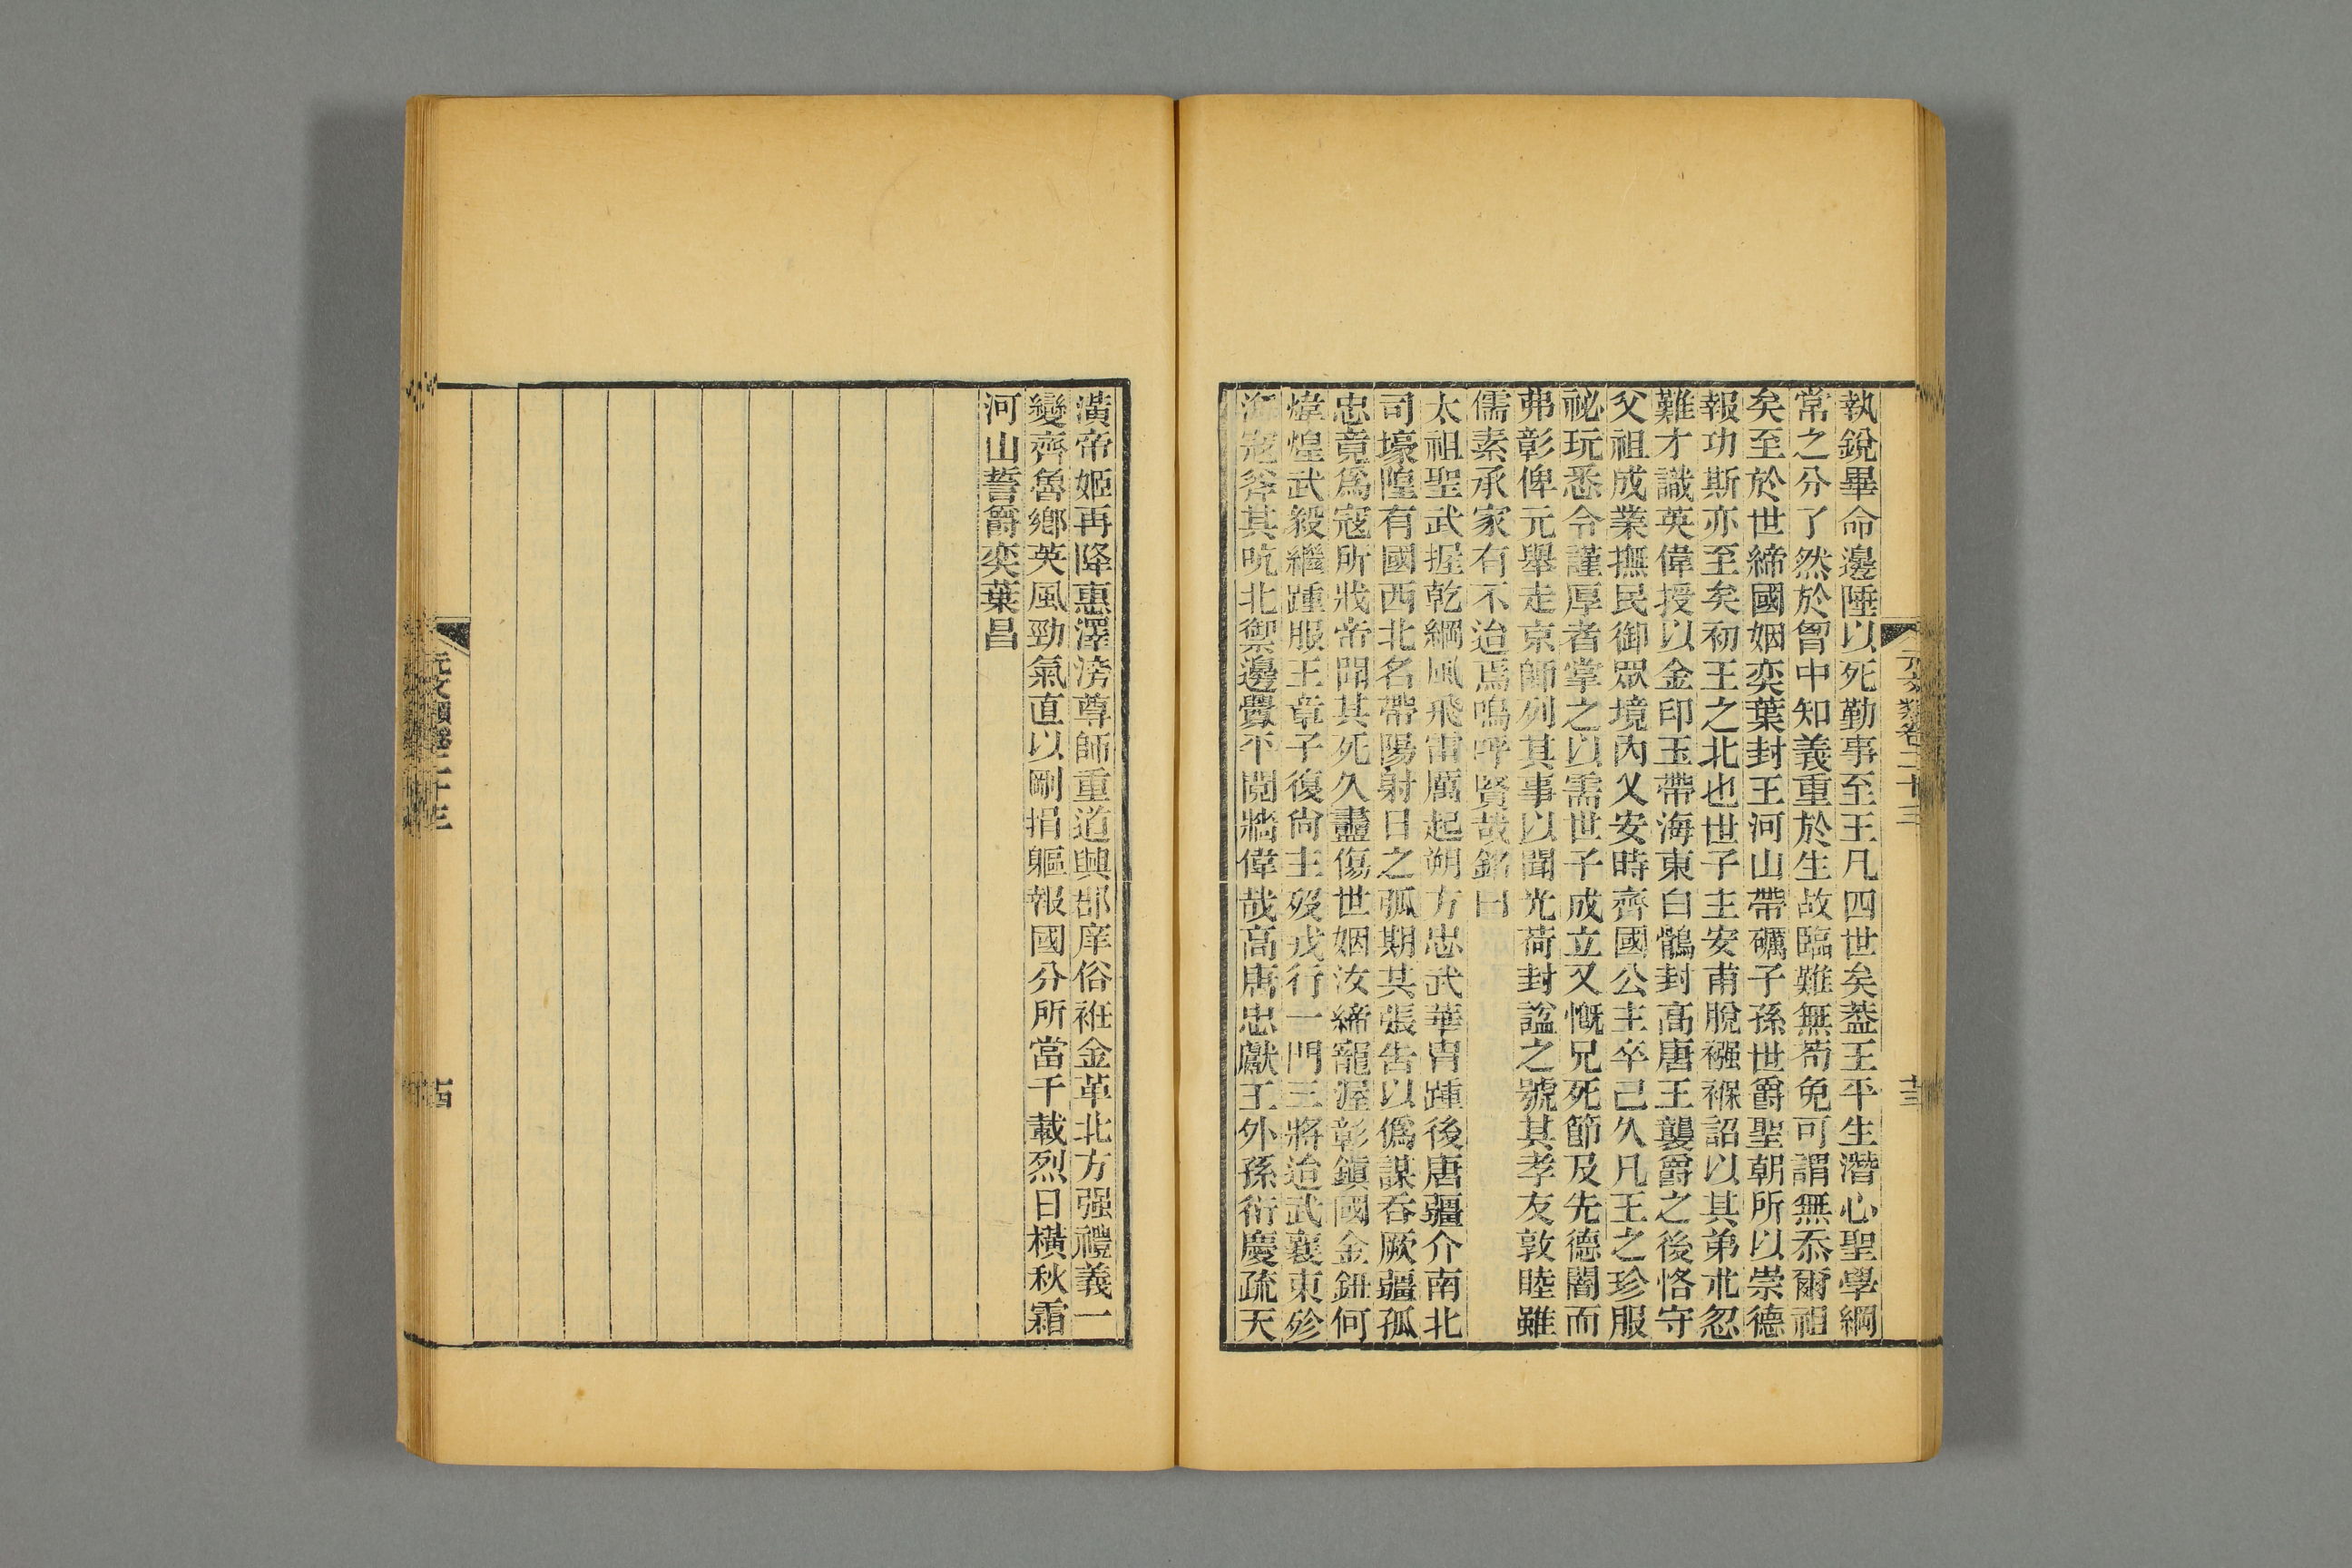 執銳畢命邊陲以死勤事至王凡四世矣葢王平生潛心聖學綱
常之分了然於曾中知義重於生故臨難無茍免可謂無忝爾祖
矣至於世締國姻奕葉封王河山帶礪子孫世爵聖朝所以崇德
報功斯亦至矣初王之北也世子主安甫脫襁褓詔以其弟朮忽
難才識英偉授以金印玉帶海東白鶻封高唐王襲爵之後恪守
父祖成業撫民御眾境內乂安時齊國公主卒已久凡王之珍服
祕玩悉令謹厚者掌之以需世子成立又慨兄死節及先德闇而
弗彰俾元舉走京師列其事以聞光荷封諡之號其孝友敦睦雖
儒素承家有不迨焉嗚呼賢哉銘曰
太祖聖武握乾綱風飛雷厲起朔方忠武華冑踵後唐疆介南北
司壕隍有國西北名帶陽射日之弧期其張告以僞謀吞厥疆孤
忠竟爲寇所戕帝聞其死久衋傷世姻汝締寵渥彰鎭國金鈕何
煒煌武毅繼踵服王章子復尙主歿戎行一門三將迨武襄東殄
海寇斧其吭北禦邊釁不鬩牆偉哉高唐忠獻王外孫衍慶疏天
潢帝姬再降惠澤滂尊師重道興郡庠俗袵金革北方强禮義一
變齊魯鄉英風勁氣直以剛捐軀報國分所當千載烈日橫秋霜
河山誓爵奕葉昌
元文類卷二十三
十三
元文類卷二十三
十四